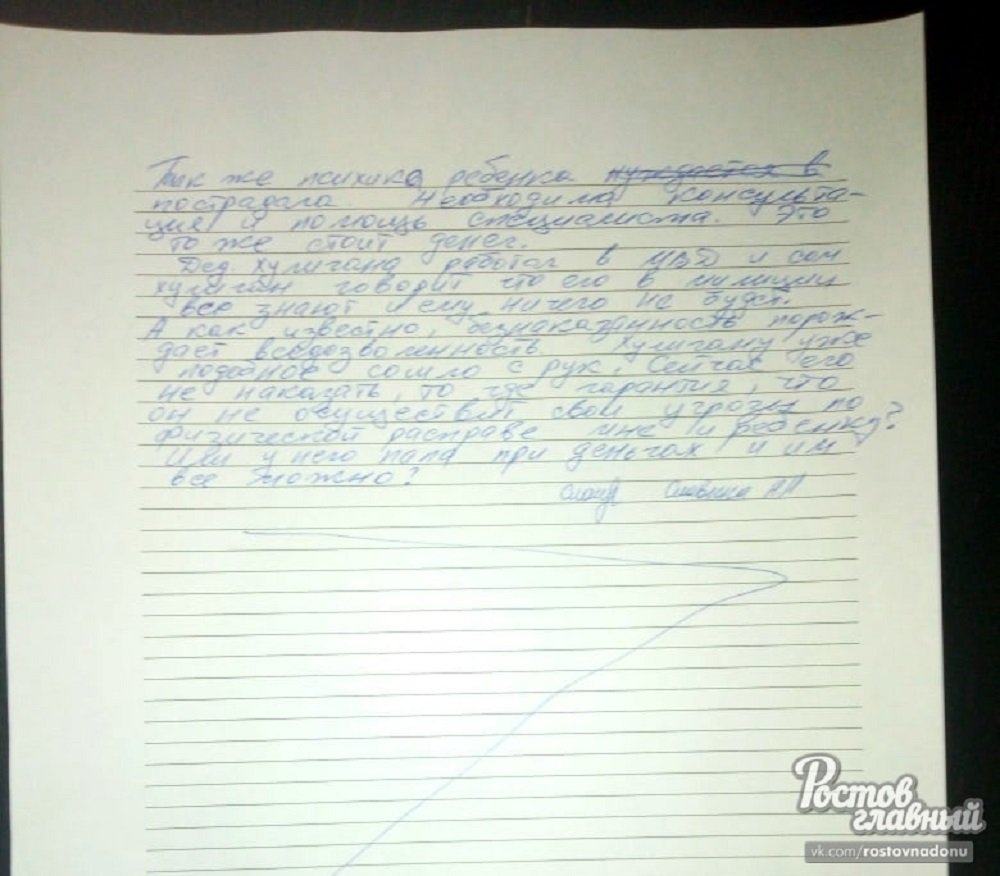 Так же психика ребенка нуждается в
пострадала. Необходима консульта-
ция и помощь специалиста. Это
то же стоит денег.
Дед хулигана работал в МВД и сам
хулиган говорит что его в милиции
все знают и ему ничего не будет.
А как известно, безнаказанность порож-
дает вседозволенность. Хулигану уже
подобное сошло с рук. Сейчас его
не наказать, то где гарантия, что
он не осуществит свои угрозы по
физической расправе мне и ребенку?
Или у него папа при деньгах и им
все можно?
Ростов
главный
vk.com/rostovnadonu